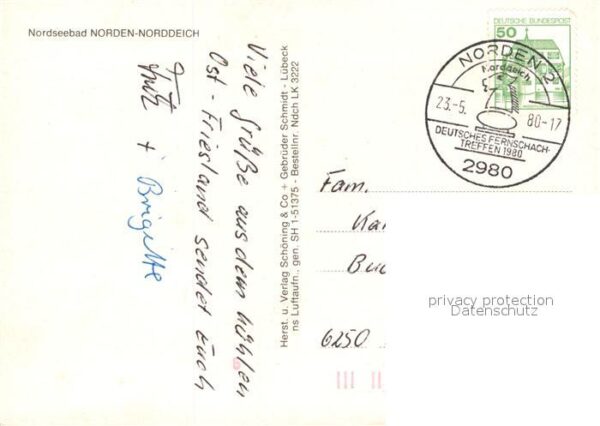 Nordseebad NORDEN-NORDDEICH
Viele Grüße aus dem kühlen
Ost-Friesland sendet Euch
Fritz + Brigitte
Herst. u. Verlag Schöning & Co + Gebrüder Schmidt - Lübeck
ns Luftaufn., gen. SH 1-51375 - Bestellnr. Ndch LK 3222
DEUTSCHE BUNDESPOST
50
NORDEN 2
Norddeich
23.-5. 80-17
DEUTSCHES FERNSCHACH-
TREFFEN 1980
2980
Fam.
Ka
Bu
6250
privacy protection
Datenschutz